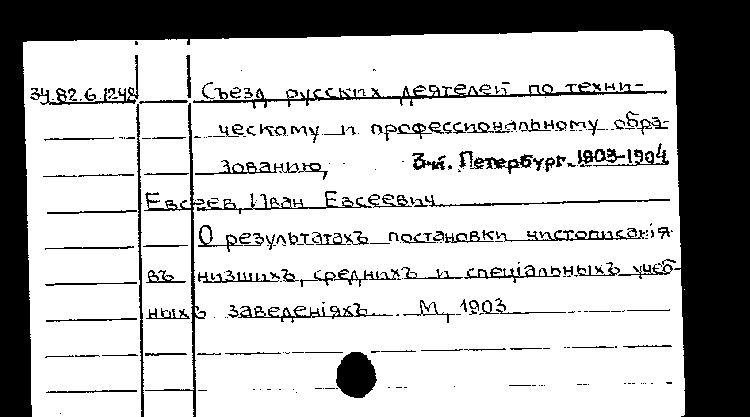 34.82.6.1248 Съезд русских деятелей по техни-
ческому и профессиональному обра-
зованию, 3-й. Петербург. 1903-1904
Евсеев, Иван Евсеевич
О результатахъ постановки чистописанія
въ низшихъ, среднихъ и спеціальныхъ учеб-
ныхъ заведеніяхъ. М, 1903